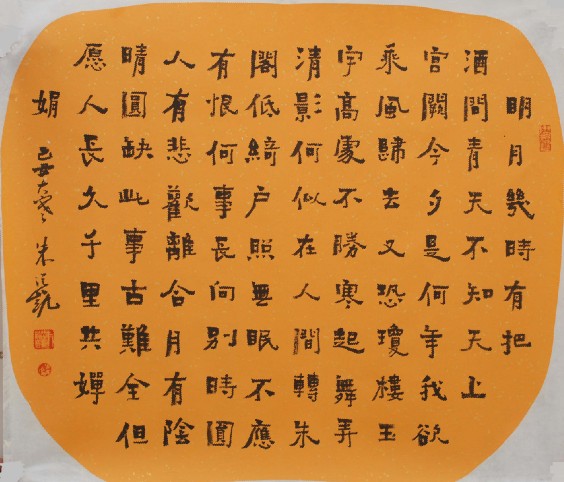 明月幾時有把
酒問青天不知天上
宫闕今夕是何年我欲
乘風歸去又恐瓊樓玉
宇高處不勝寒起舞弄
清影何似在人間轉朱
閣低綺户照無眠不應
有恨何事長向别時圓
人有悲歡離合月有陰
晴圓缺此事古難全但
愿人長久千里共嬋
娟 己丑大寒 朱